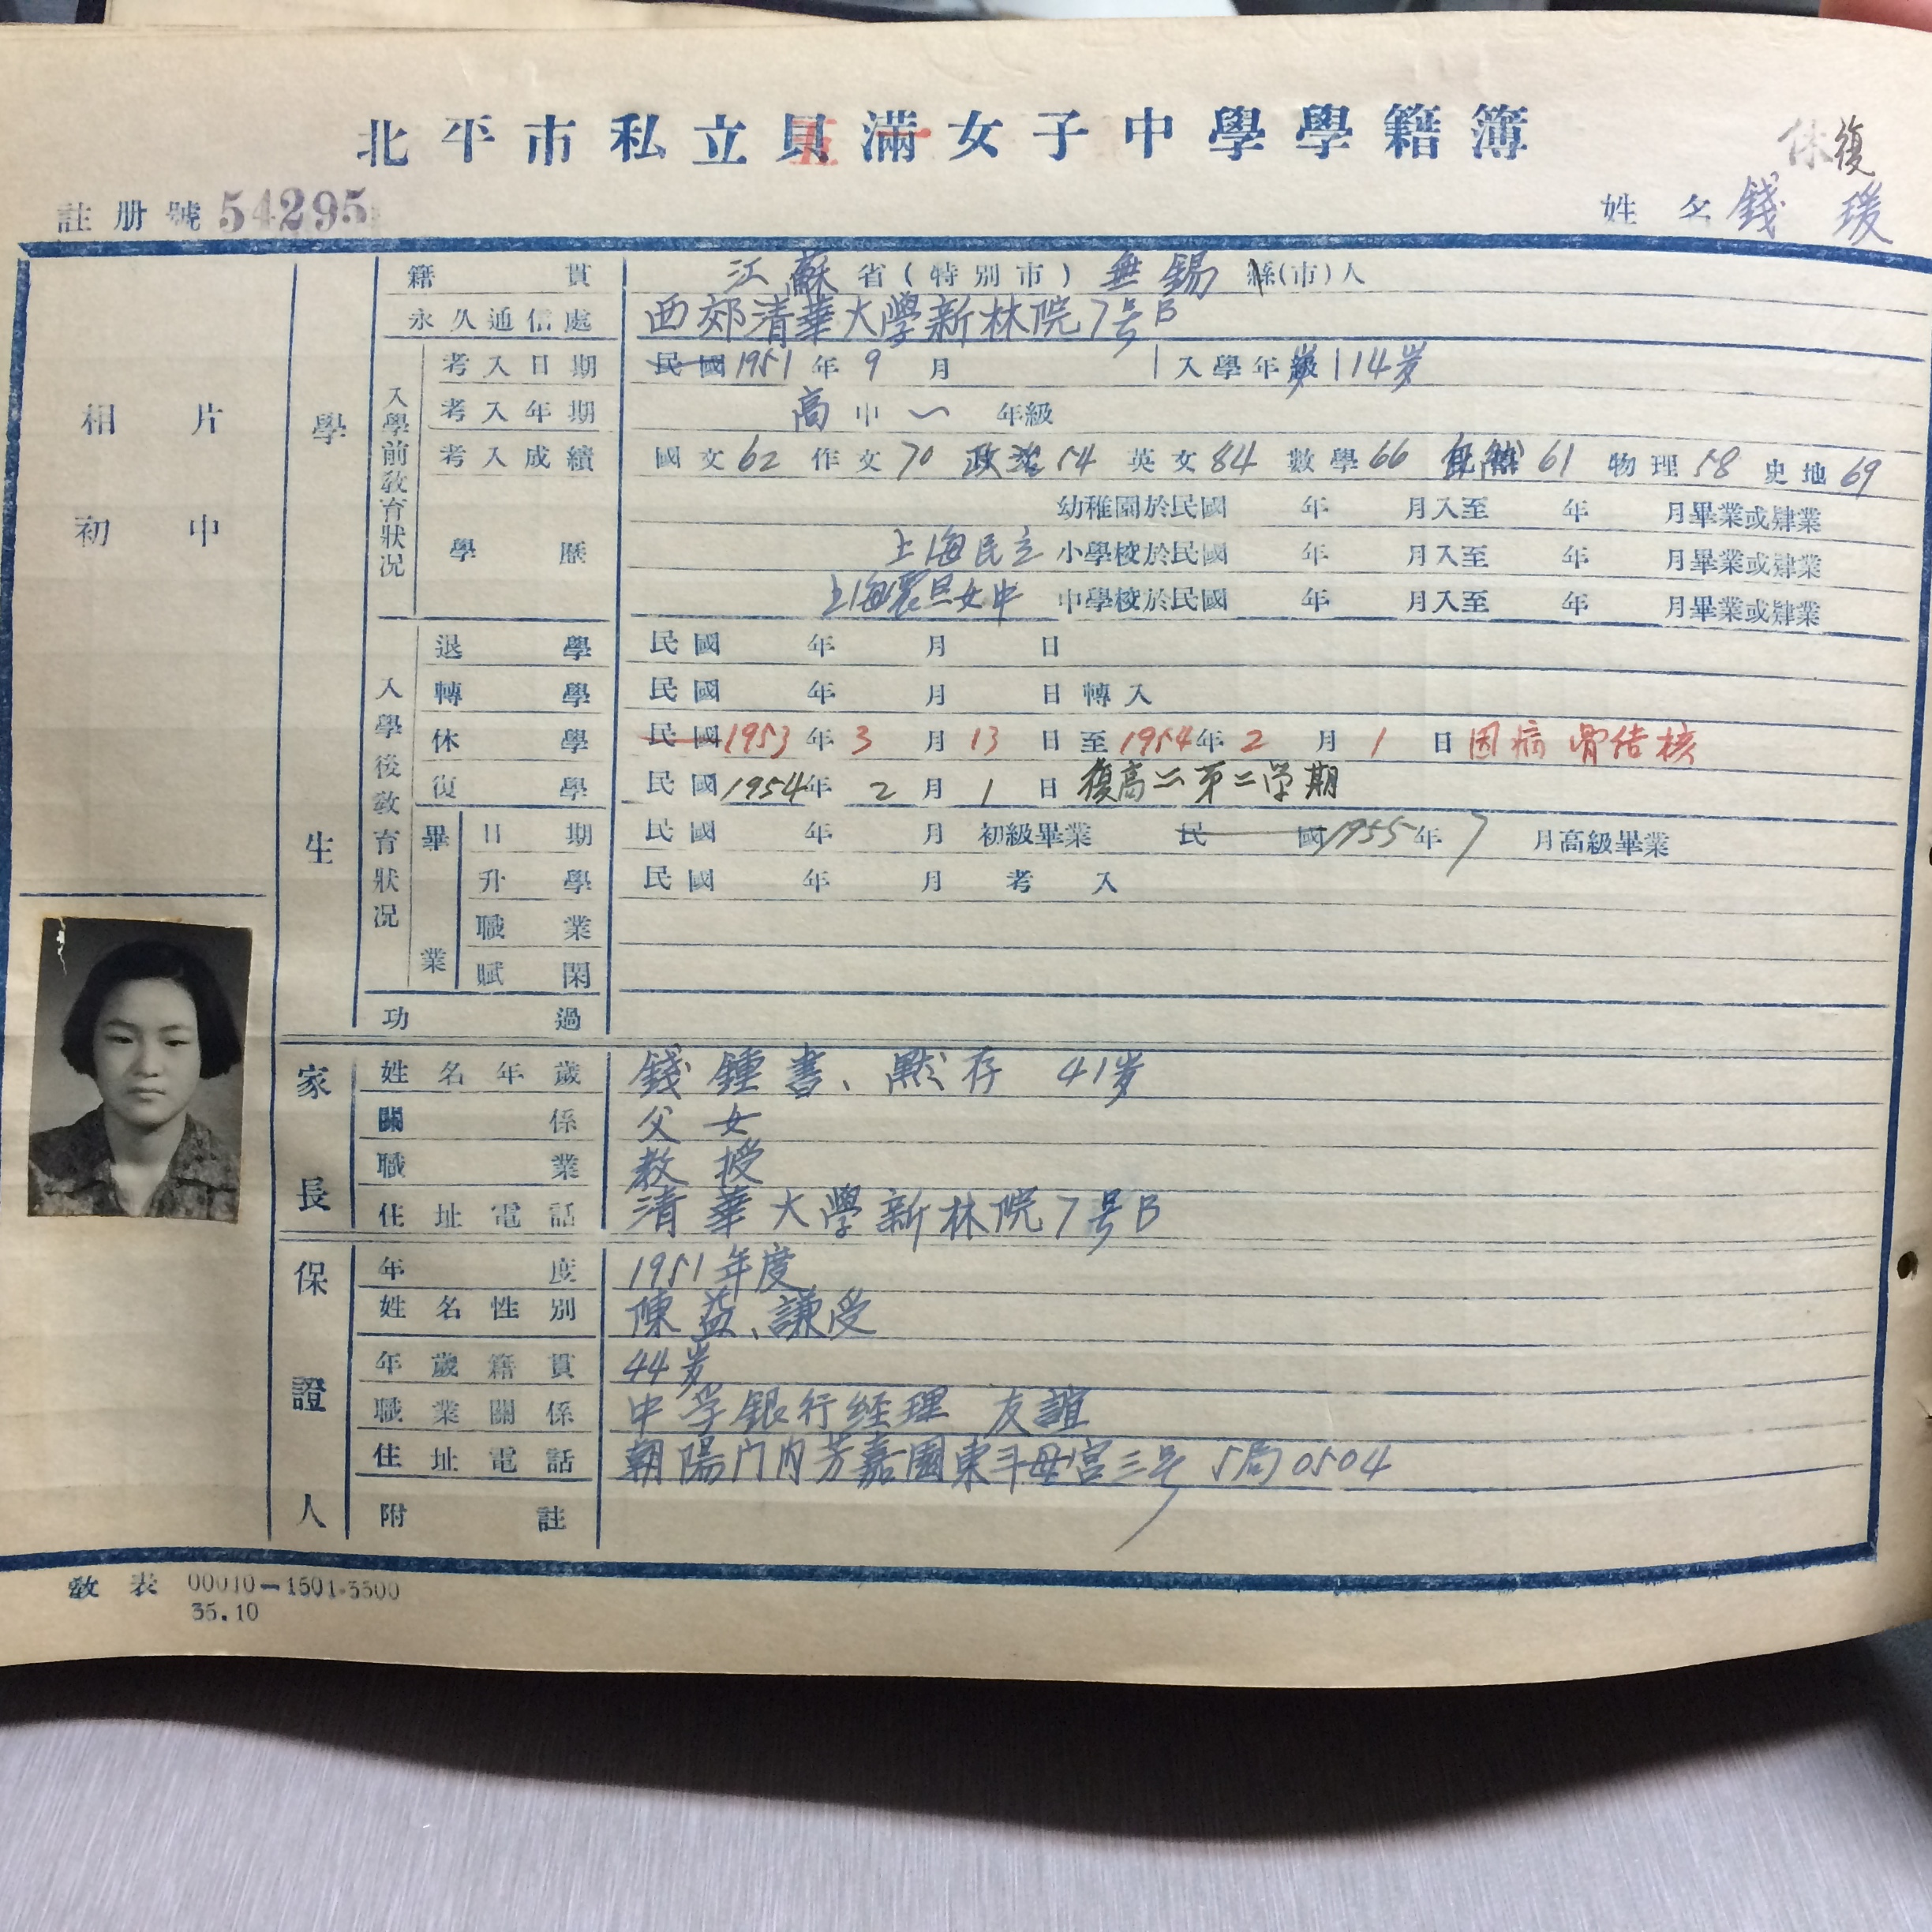 北平市私立貝滿女子中學學籍簿
休復
註册號 54295
姓名 錢瑗
相片
初中
學生
籍貫 江蘇省(特別市)無錫縣(市)人
永久通信處 西郊清華大學新林院7号B
入學前教育狀况
考入日期 民國1951年9月 入學年歲14岁
考入年期 高中一年級
考入成績 國文62 作文70 政治54 英文84 數學66 61 物理58 史地69
學歷 幼稚園於民國 年 月入至 年 月畢業或肄業
上海民立 小學校於民國 年 月入至 年 月畢業或肄業
上海震旦女中 中學校於民國 年 月入至 年 月畢業或肄業
入學後教育狀况
退學 民國 年 月 日
轉學 民國 年 月 日轉入
休學 民國1953年3月13日至1954年2月1日因病骨结核
復學 民國1954年2月1日復高二第二学期
畢業
日期 民國 年 月 初級畢業 民國1955年7月高級畢業
升學 民國 年 月 考入
職業
賦閑
功過
家長
姓名年歲 錢鍾書、默存 41岁
關係 父女
職業 教授
住址電話 清華大學新林院7号B
保證人
年度 1951年度
姓名性別 陳益、謙受
年歲籍貫 44岁
職業關係 中孚銀行經理 友誼
住址電話 朝陽门内芳嘉園東斗母宫三号 5局0504
附註
教表 00010-1501-3500
35.10